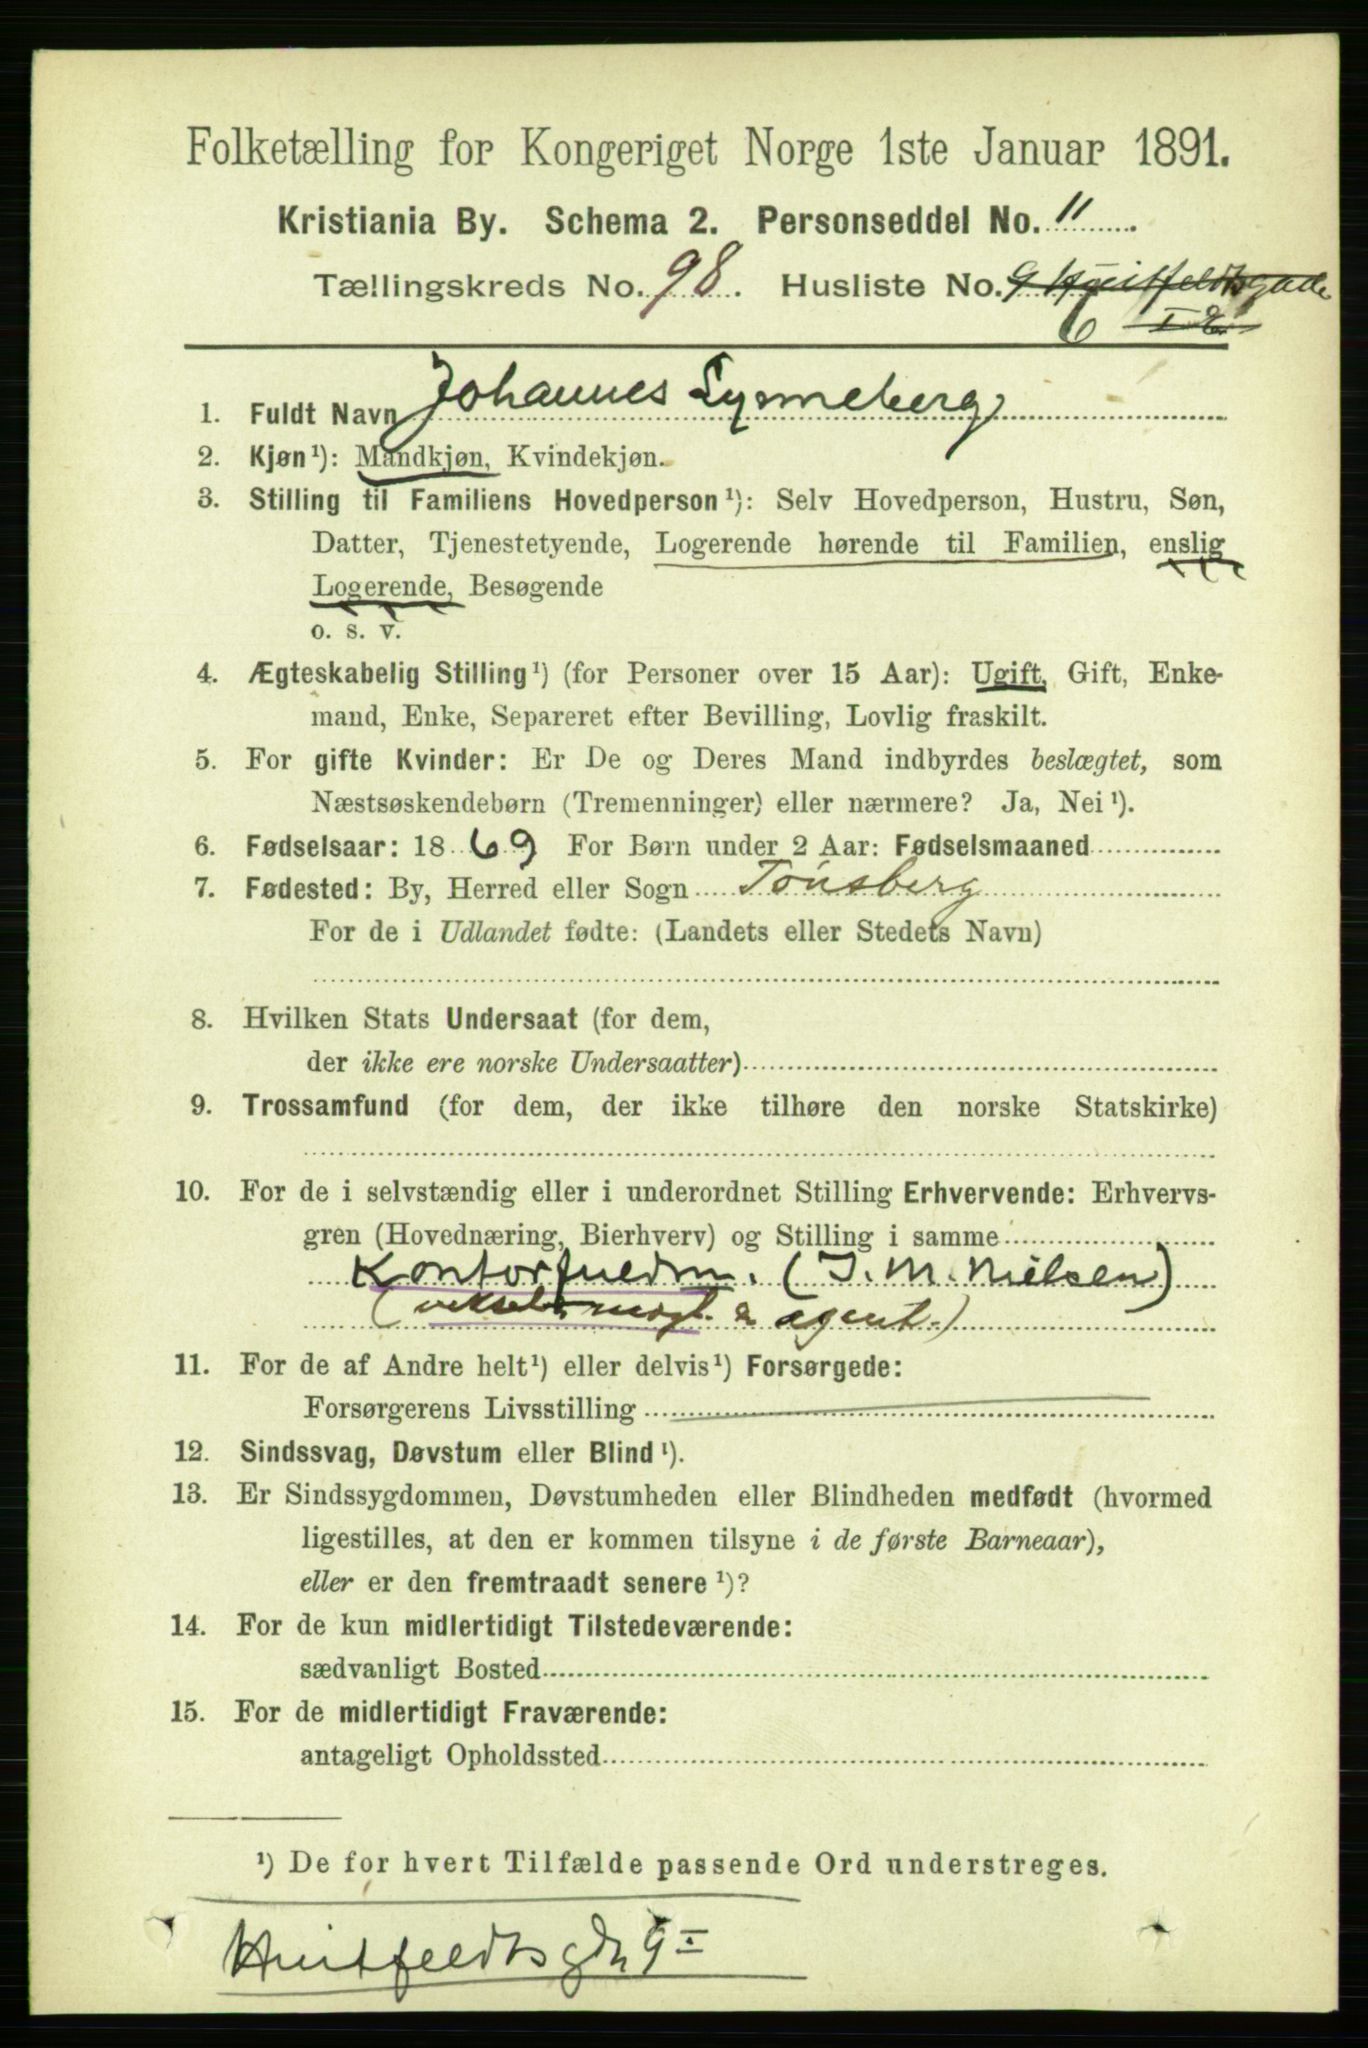 Folketælling for Kongeriget Norge 1ste Januar 1891.
Kristiania By. Schema 2. Personseddel No. 11
Tællingskreds No. 98. Husliste No. 9 Huitfeldtsgade
6 I
1. Fuldt Navn Johannes Lynneberg
2. Kjøn¹): Mandkjøn, Kvindekjøn.
3. Stilling til Familiens Hovedperson¹): Selv Hovedperson, Hustru, Søn,
Datter, Tjenestetyende, Logerende hørende til Familien, enslig
Logerende, Besøgende
o. s. v.
4. Ægteskabelig Stilling¹) (for Personer over 15 Aar): Ugift, Gift, Enke-
mand, Enke, Separeret efter Bevilling, Lovlig fraskilt.
5. For gifte Kvinder: Er De og Deres Mand indbyrdes beslægtet, som
Næstsøskendebørn (Tremenninger) eller nærmere? Ja, Nei¹).
6. Fødselsaar: 1869 For Børn under 2 Aar: Fødselsmaaned
7. Fødested: By, Herred eller Sogn Tønsberg
For de i Udlandet fødte: (Landets eller Stedets Navn)
8. Hvilken Stats Undersaat (for dem,
der ikke ere norske Undersaatter)
9. Trossamfund (for dem, der ikke tilhøre den norske Statskirke)
10. For de i selvstændig eller i underordnet Stilling Erhvervende: Erhvervs-
gren (Hovednæring, Bierhverv) og Stilling i samme
Kontorfuldm. (J. M. Nielsen)
(vekselermægl. & agent.)
11. For de af Andre helt¹) eller delvis¹) Forsørgede:
Forsørgerens Livsstilling
12. Sindssvag, Døvstum eller Blind¹).
13. Er Sindssygdommen, Døvstumheden eller Blindheden medfødt (hvormed
ligestilles, at den er kommen tilsyne i de første Barneaar),
eller er den fremtraadt senere¹)?
14. For de kun midlertidigt Tilstedeværende:
sædvanligt Bosted
15. For de midlertidigt Fraværende:
antageligt Opholdssted
¹) De for hvert Tilfælde passende Ord understreges.
Huitfeldtsgdn 9 I